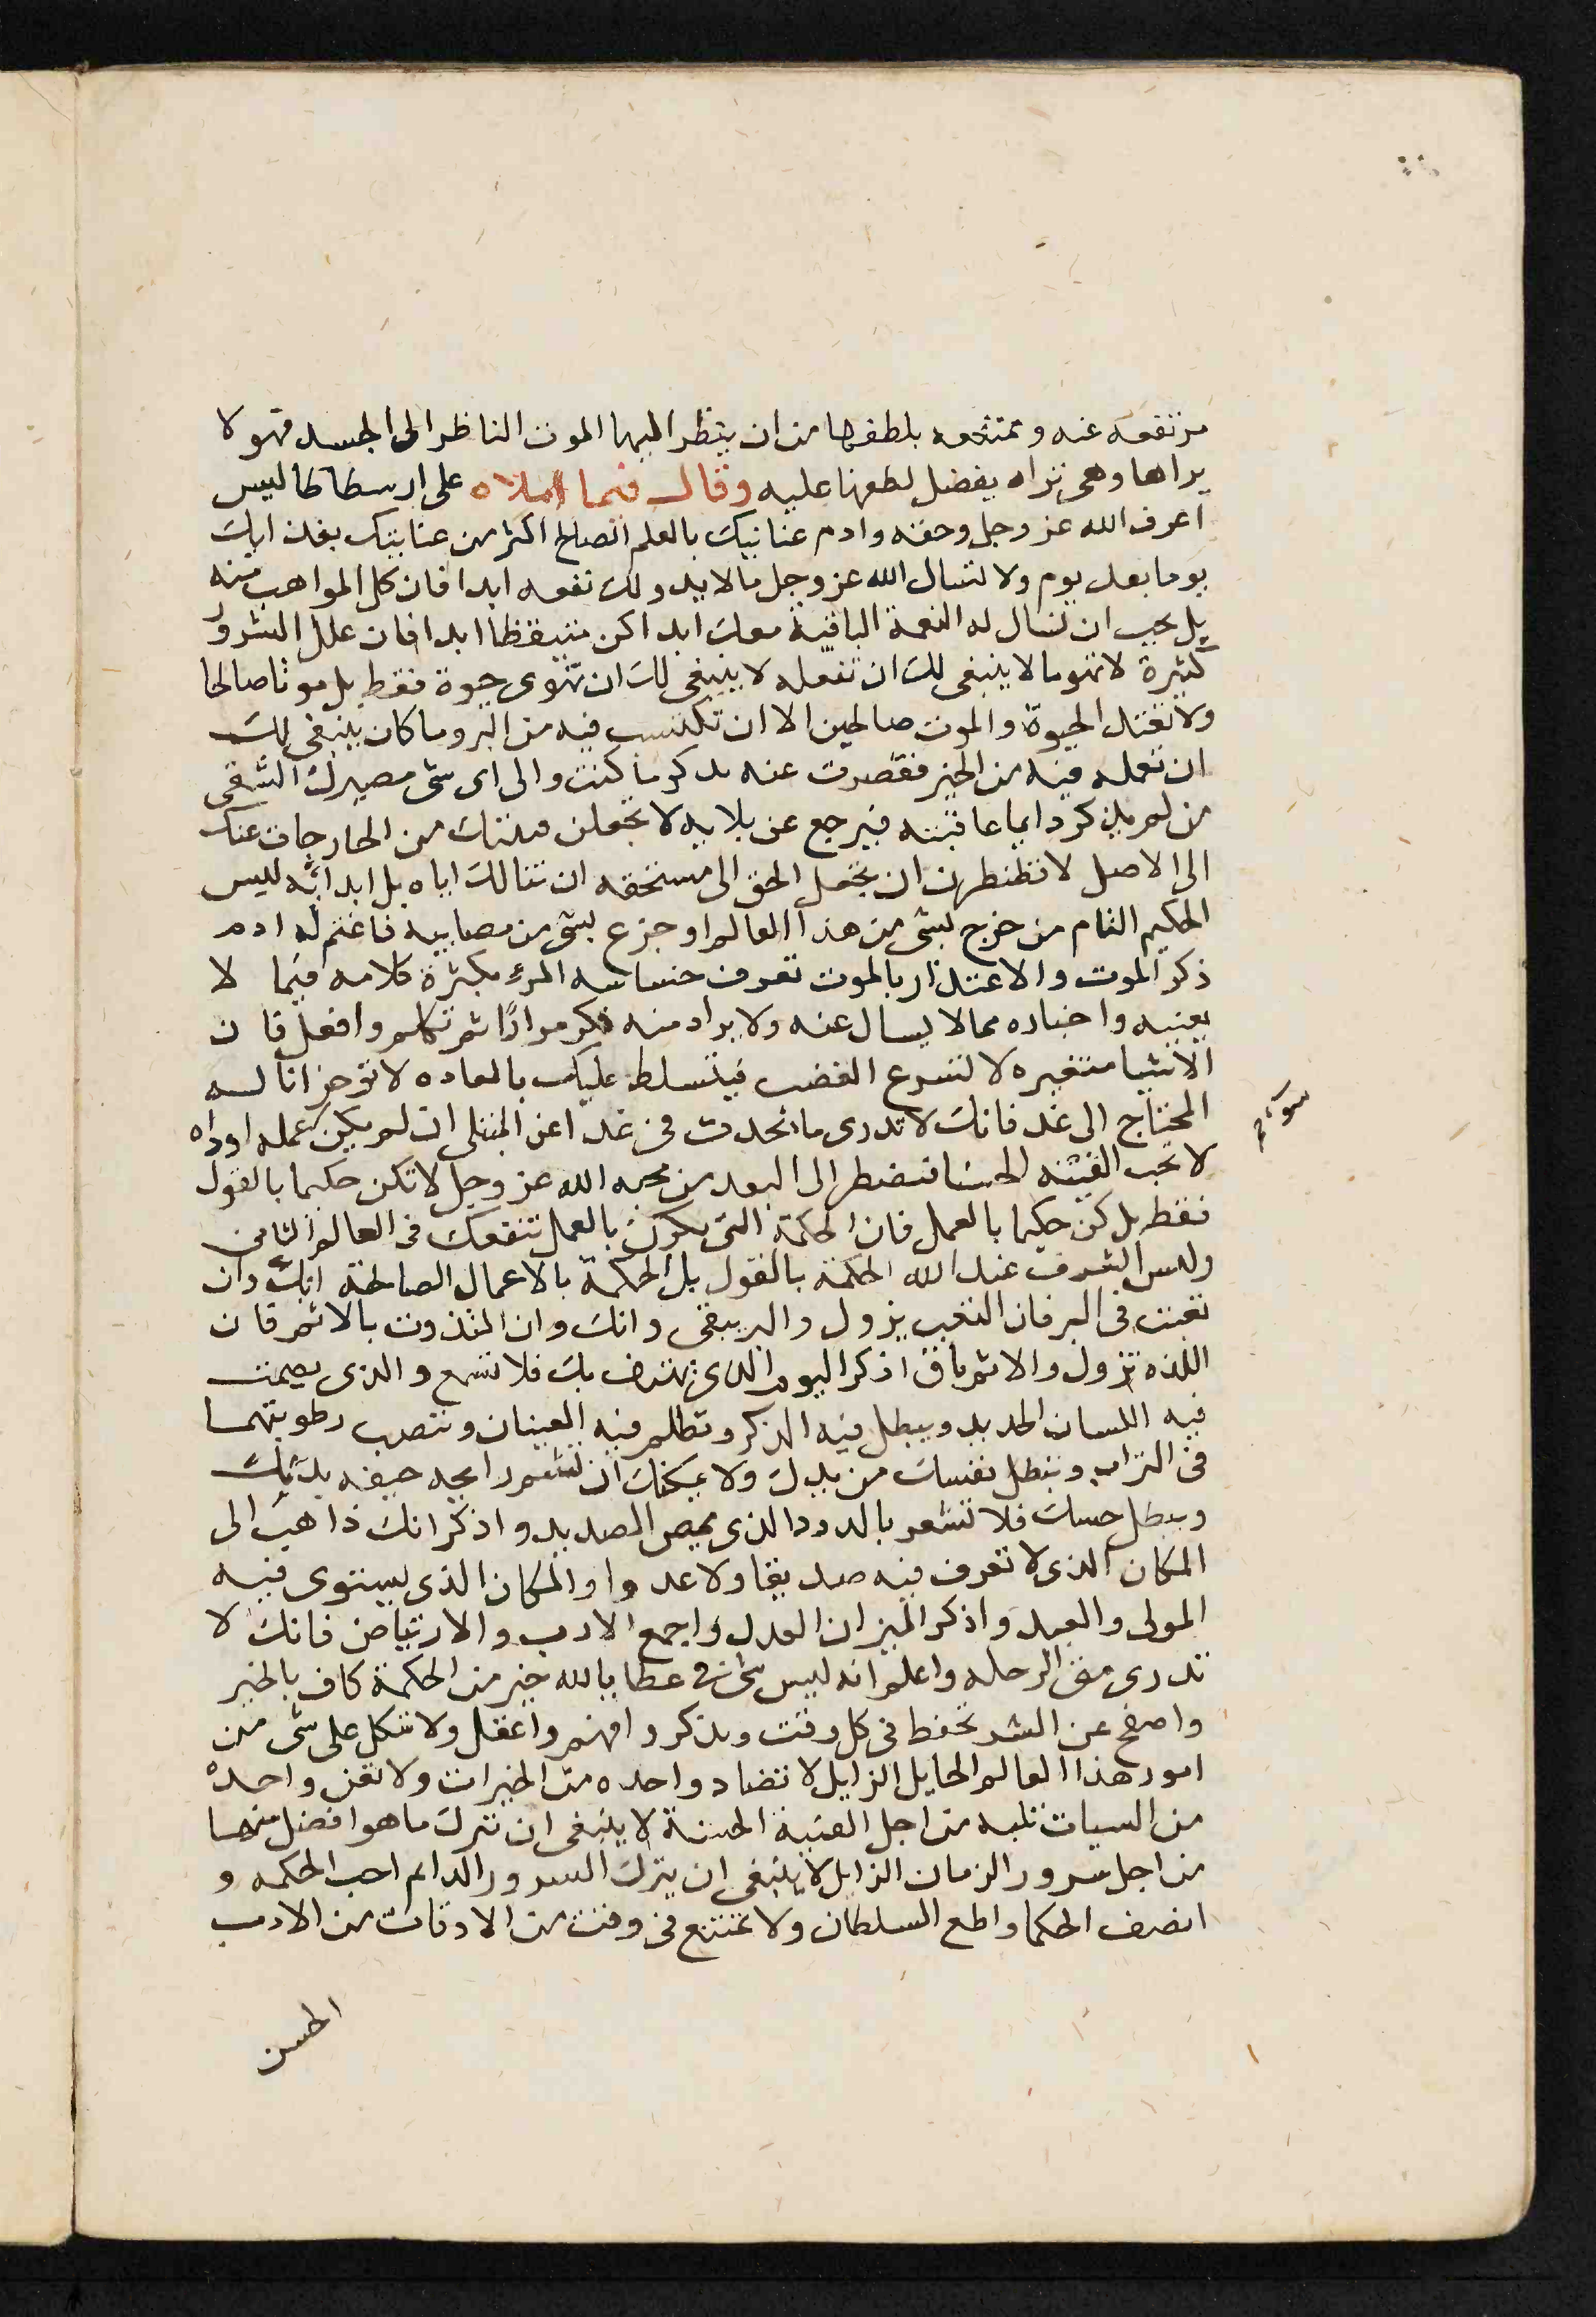 مرتفعه عنه وممتنعه بلطفها من ان ينظر اليها الموت الناظر الى الجسد فهو لا
يراها وهى تراه بفضل لطفها عليه وقال فيما املاه على ارسطاطاليس
اعرف الله عز وجل وحقه وادم عنايتك بالعلم الصالح اكثر من عنايتك بغذايك
يوما بعد يوم ولا تسال الله عز وجل مالا يدوم لك نفعه ابدا فان كل المواهب منه
بل يجب ان تسال له النعمة الباقية معك ابدا كن متيقظا ابدا فان علل الشرور
كثيرة لا تهو ما لا ينبغى لك ان تفعله لا ينبغى لك ان تهوى حيوة فقط بل موتا صالحا
ولا تعتد الحيوة والموت صالحين الا ان تكتسب فيه من البر وما كان ينبغى لك
ان تعمله فيه من الخير فقصرت عنه تذكر ما كنت والى اى شى مصيرك الشقى
من لم يذكر دايما عاقبته فيرجع عن بلايه لا تجعلن من الخارجات عنك
الى الاصل لا ان تجعل الحق الى مستحقه ان تنالك اياه بل ابدا به ليس
الحكيم التام من فرح بشى من هذا العالم او جزع بشى من مصايبه فاغتم له ادم
ذكر الموت والاعتذار بالموت تعرف خساسه المرء بكثرة كلامه فيما لا
يعنيه واخباره مما لا يسال عنه ولا يراد منه فكر مرارا ثم تكلم وافعل فان
الاشيا متغيره لا تسرع الغضب فيتسلط عليك بالعاده لا تؤخر انالـه
المحتاج الى غد فانك لا تدرى ما يحدث فى غد اعن المبتلى ان لم يكن عمله اوداه
سوء
لا تحب القنيه الحسنا فتضطر الى البعد من محبه الله عز وجل لا تكن حكيما بالقول
فقط بل كن حكيما بالعمل فان الحكمة التى تكون بالعمل تنفعك فى العالم الثامن
وليس الشرف عند الله الحكمة بالقول بل الحكمة بالاعمال الصالحة انك وان
تعبت فى البر فان التعب يزول والبر يبقى وانك وان التذذت بالاثم فان
اللذه تزول والاثم باق اذكر اليوم الذى يهتف بك فلا تسمع والذى يصمت
فيه اللسان الحديد ويبطل فيه الذكر وتظلم فيه العينان وتنصب رطوبتهما
فى التراب وتبطل نفسك من بدنك ولا يمكنك ان تشم رايحه جيفه بدنك
ويبطل حسك فلا تشعر بالدود الذى يمص الصديد واذكر انك ذاهب الى
المكان الذى لا تعرف فيه صديقا ولا عدوا والمكان الذى يستوى فيه
المولى والعبد واذكر الميزان العدل واجمع الادب والارتياض فانك لا
تدرى متى الرحله واعلم انه ليس شى فى عطايا الله خير من الحكمة كاف بالخير
واصفح عن الشر تحفظ فى كل وقت وتذكر وافهم واعقل ولا تتكل على شى من
امور هذا العالم الحايل الزايل لا تضاد واحده من الخيرات ولا تقن واحده
من السيات من اجل القنيه الحسنة لا ينبغى ان تترك ما هو افضل منها
من اجل سرور الزمان الزايل لا ينبغى ان يترك السرور الدايم احب الحكمه و
انصف الحكما واطع السلطان ولا تمتنع فى وقت من الاوقات من الادب
الحسن